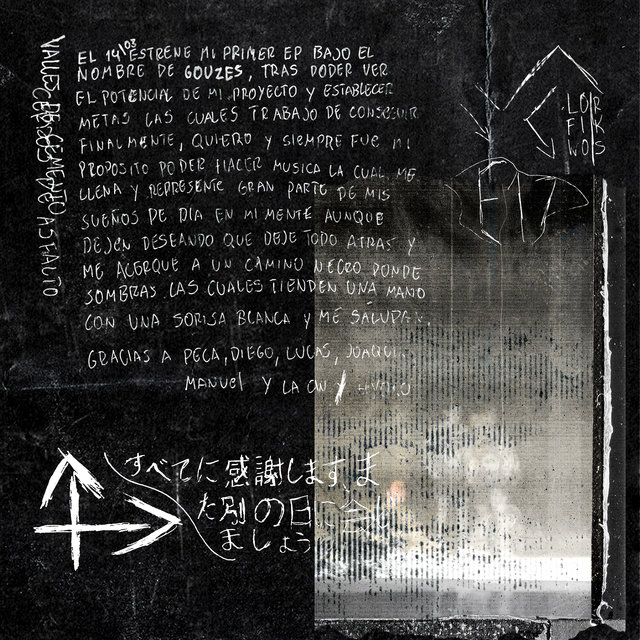 EL 14\03 ESTRENE MI PRIMER EP BAJO EL
NOMBRE DE GOUZES, TRAS PODER VER
EL POTENCIAL DE MI PROYECTO Y ESTABLECER
METAS LAS CUALES TRABAJO DE CONSEGUIR
FINALMENTE, QUIERO Y SIEMPRE FUE MI
PROPOSITO PODER HACER MUSICA LA CUAL ME
LLENA Y REPRESENTE GRAN PARTE DE MIS
SUEÑOS DE DIA EN MI MENTE AUNQUE
DEJEN DESEANDO QUE DEJE TODO ATRAS Y
ME ACERQUE A UN CAMINO NEGRO DONDE
SOMBRAS LAS CUALES TIENDEN UNA MANO
CON UNA SORISA BLANCA Y ME SALUDAN.
GRACIAS A PECA, DIEGO, LUCAS,
MANUEL Y LA
VALLES DE CEMENTO
ASFALTO
LOR
FIK
WOS
すべてに感謝します、ま
た別の日に会い
ましょう